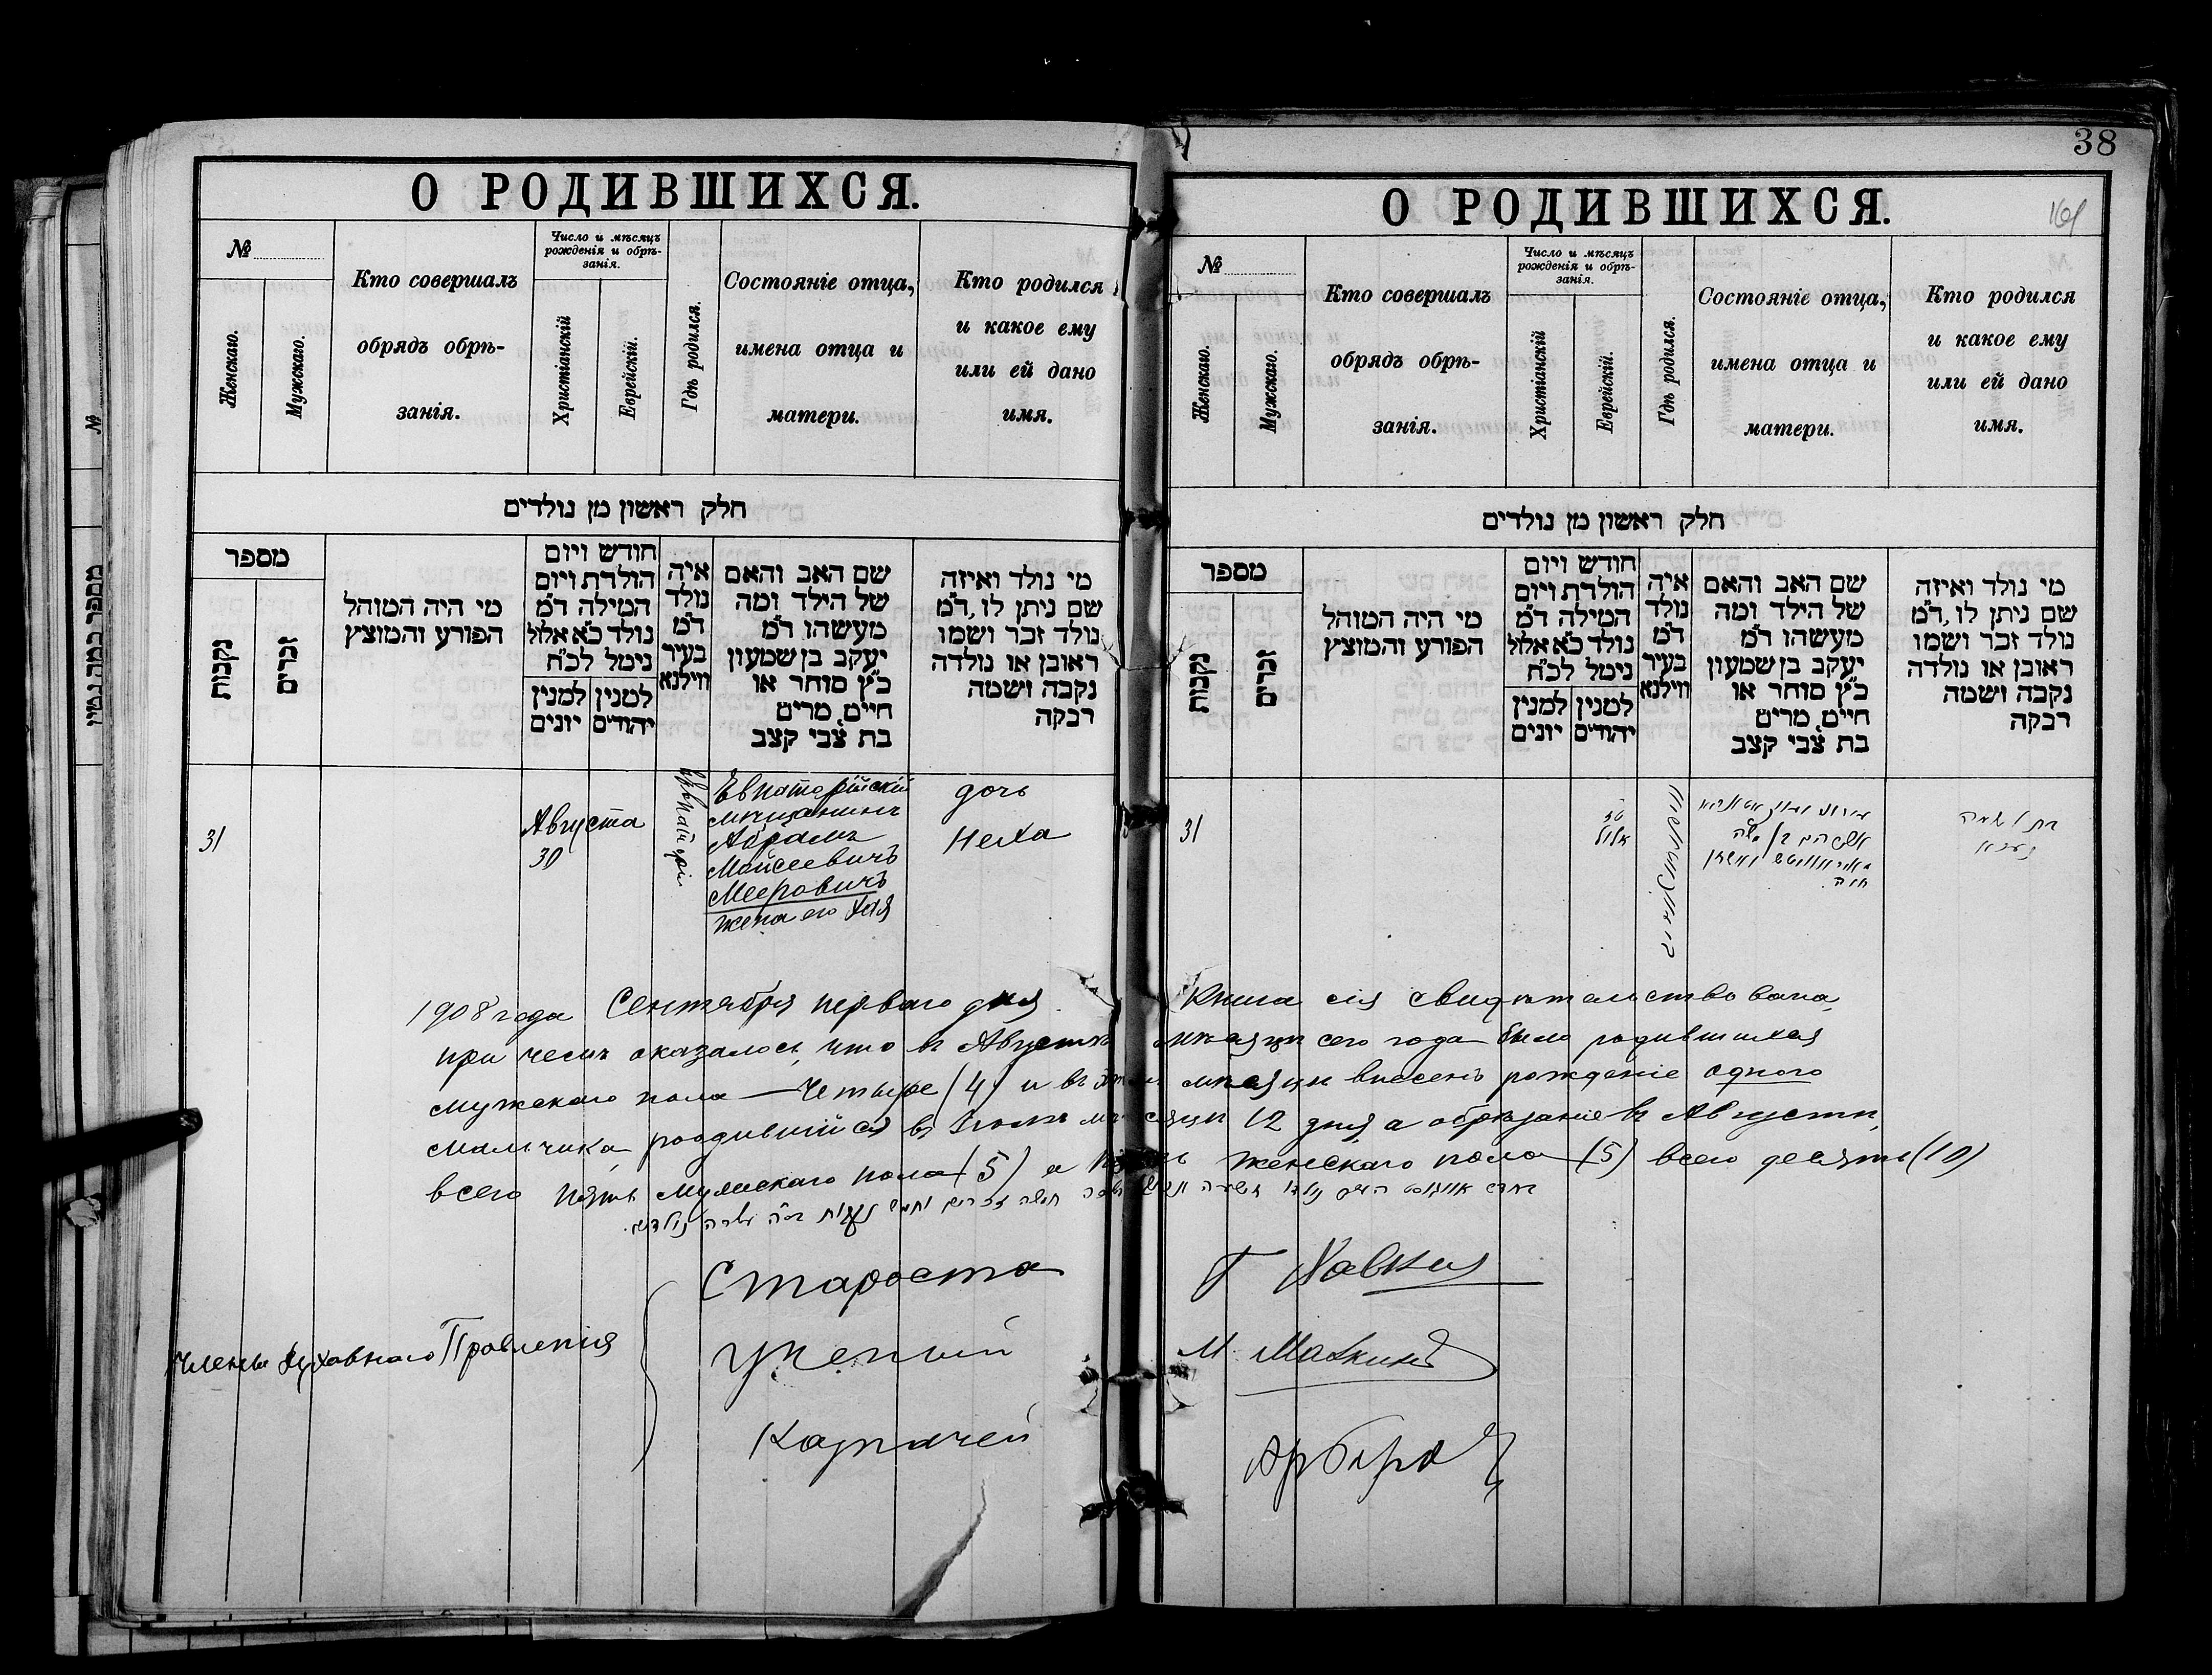 О РОДИВШИХСЯ.
№
Женскаго.
Мужскаго.
Кто совершалъ
обрядъ обрѣ-
занія.
Число и мѣсяцъ
рожденія и обрѣ-
занія.
Христіанскій
Еврейскій.
Гдѣ родился.
Состояніе отца,
имена отца и
матери.
Кто родился
и какое ему
или ей дано
имя.
חלק ראשון מן נולדים
מספר
נקבות
זכרים
מי היה המוהל
הפורע והמוצץ
חודש ויום
הולדת ויום
המילה ד״מ
נולד כ״א אלול
נימל לכ״ח
למנין
יהודים
למנין
יונים
איה
נולד
ד״מ
בעיר
ווילנא
שם האב והאם
של הילד ומה
מעשהו ד״מ
יעקב בן שמעון
כ״ץ סוחר או
חיים, מרים
בת צבי קצב
מי נולד ואיזה
שם ניתן לו, ד״מ
נולד זכר ושמו
ראובן או נולדה
נקבה ושמה
רבקה
31
Августа
30
Евпаторійскій
мѣщанинъ
Абрамъ
Мойсеевичъ
Мееровичъ
жена его Хая
дочь
Неха
38
О РОДИВШИХСЯ.
№
Женскаго.
Мужскаго.
Кто совершалъ
обрядъ обрѣ-
занія.
Число и мѣсяцъ
рожденія и обрѣ-
занія.
Христіанскій
Еврейскій.
Гдѣ родился.
Состояніе отца,
имена отца и
матери.
Кто родился
и какое ему
или ей дано
имя.
חלק ראשון מן נולדים
מספר
נקבות
זכרים
מי היה המוהל
הפורע והמוצץ
חודש ויום
הולדת ויום
המילה ד״מ
נולד כ״א אלול
נימל לכ״ח
למנין
יהודים
למנין
יונים
איה
נולד
ד״מ
בעיר
ווילנא
שם האב והאם
של הילד ומה
מעשהו ד״מ
יעקב בן שמעון
כ״ץ סוחר או
חיים, מרים
בת צבי קצב
מי נולד ואיזה
שם ניתן לו, ד״מ
נולד זכר ושמו
ראובן או נולדה
נקבה ושמה
רבקה
31
אלול
אברהם בן משה
חיה
בת ושמה
1908 года Сентября перваго дня Книга сія свидѣтельствована,
при чемъ оказалось, что въ Августѣ мѣсяцѣ сего года было родившихся
мужскаго пола — Четыре (4) и въ мѣсяцѣ внесенъ рожденіе одного
мальчика, родившійся въ Іюлѣ мѣсяцѣ 12 дня, а обрѣзаніе въ Августѣ,
всего пять мужскаго пола (5) а пять женскаго пола (5) всего десять (10)
Члены Духовнаго Правленія
Староста
Ученый
Казначей